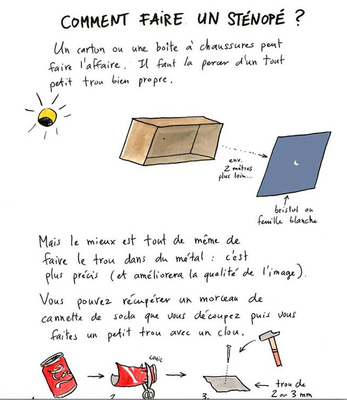 COMMENT FAIRE UN STÉNOPÉ ?
Un carton ou une boîte à chaussures peut
faire l'affaire. Il faut la percer d'un tout
petit trou bien propre.
env.
2 mètres
plus loin...
bristol ou
feuille blanche
Mais le mieux est tout de même de
faire le trou dans du métal : c'est
plus précis (et améliorera la qualité de l'image).
Vous pouvez récupérer un morceau de
cannette de soda que vous découpez puis vous
faites un petit trou avec un clou.
trou de
2 ou 3 mm
1.
2.
3.